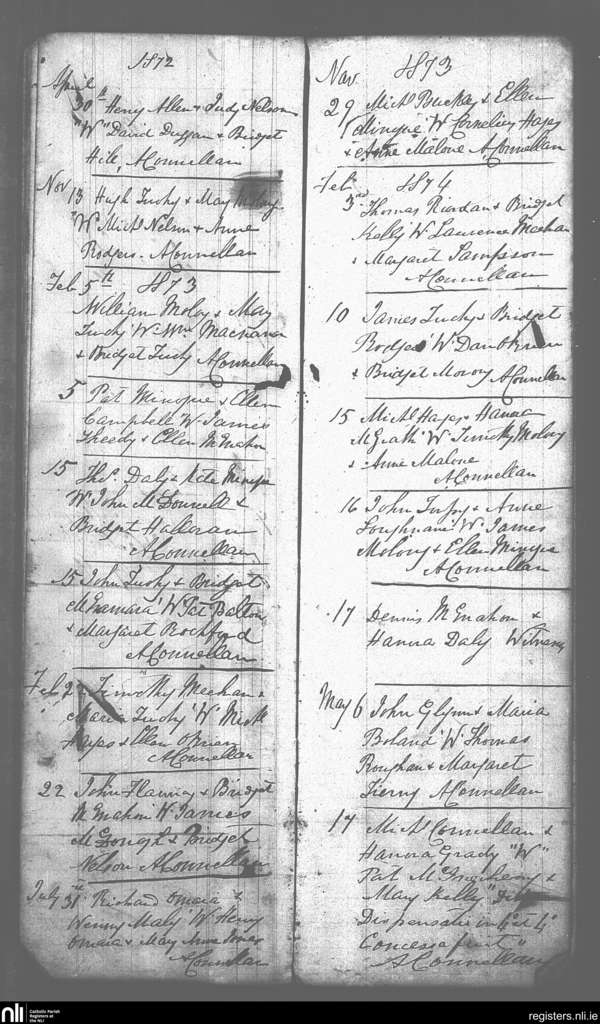 1872
April
30th Henry Allen & Judy Nelson
"W" David Duggan & Bridget
Hill, AConnellan
Nov 13 Hugh Tuohy & May
"W" Michl Nelson & Anne
Rodgers. AConnellan
Feb 5th 1873
William Moloy & May
Tuohy W. Wm Macnamara
& Bridget Tuohy AConnellan
5 Pat Minogue & Ellen
Campbell W James
Sheedy & Ellen McMahon
15 Thos. Daly & Kate Minogue
W John McDonnell &
Bridget Halloran
AConnellan
15 John Tuohy & Bridget
McNamara "W" Pat Dalton
& Margaret Rochford
AConnellan
Feb 2 Timothy Meehan &
Maria Tuohy "W" Michl
Hayes & Ellen OBrien
AConnellan
22 John Flannery & Bridget
McMahon W James
McDonogh & Bridget
Nelson AConnellan
July 31st Richard Omara &
Winny Maly "W" Henry
Omara & May Anne Jones
AConnellan
Nov 1873
29 Michl Buckley & Ellen
Minogue "W" Cornelius Hayes
& Anne Malone AConnellan
Feb 1874
3rd Thomas Riordan & Bridget
Kelly "W" Laurence Meehan
& Margaret Sampson
AConnellan
10 James Tuohy & Bridget
Rodgers "W" Dan OBrien
& Bridget Morony AConnellan
15 Michl Hayes & Hanna
McGrath "W" Timothy Molony
& Anne Malone
AConnellan
16 John & Anne
Loughnane W James
Molony & Ellen Minogue
AConnellan
17 Dennis McMahon &
Hanna Daly Witness
May 6 John Glynn & Maria
Boland "W" Thomas
Roughan & Margaret
Tierny AConnellan
17 Michl Connellan &
Hanora Grady "W"
Pat &
May Kelly"
Dispensatio in 4° et 4°
Concessa fuit"
AConnellan
nli
Catholic Parish
Registers at
the NLI
registers.nli.ie